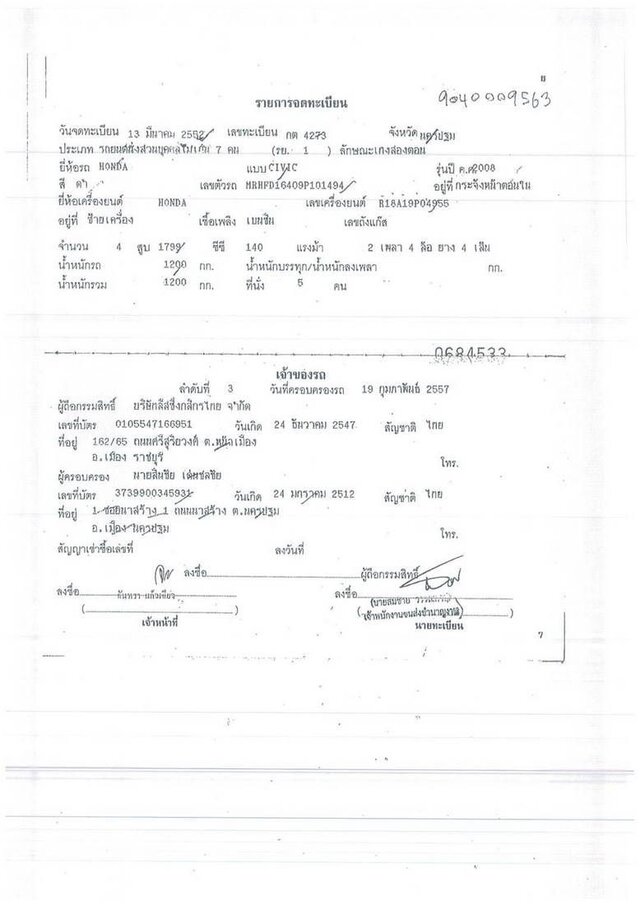 ย
9040009563
รายการจดทะเบียน
วันจดทะเบียน 13 มีนาคม 2552 เลขทะเบียน กต 4273 จังหวัด นครปฐม
ประเภท รถยนต์นั่งส่วนบุคคลไม่เกิน 7 คน (รย. 1 ) ลักษณะ เก๋งสองตอน
ยี่ห้อรถ HONDA แบบ CIVIC รุ่นปี ค.ศ.2008
สี ดำ เลขตัวรถ MRHFD16409P101494 อยู่ที่ กระจังหน้าตอนใน
ยี่ห้อเครื่องยนต์ HONDA เลขเครื่องยนต์ R18A19P04955
อยู่ที่ ซ้ายเครื่อง เชื้อเพลิง เบนซิน เลขถังแก๊ส
จำนวน 4 สูบ 1799 ซีซี 140 แรงม้า 2 เพลา 4 ล้อ ยาง 4 เส้น
น้ำหนักรถ 1200 กก. น้ำหนักบรรทุก/น้ำหนักลงเพลา กก.
น้ำหนักรวม 1200 กก. ที่นั่ง 5 คน
0684533
เจ้าของรถ
ลำดับที่ 3 วันที่ครอบครองรถ 19 กุมภาพันธ์ 2557
ผู้ถือกรรมสิทธิ์ บริษัทลีสซิ่งกสิกรไทย จำกัด
เลขที่บัตร 0105547166951 วันเกิด 24 ธันวาคม 2547 สัญชาติ ไทย
ที่อยู่ 162/65 ถนนศรีสุริยวงศ์ ต.หน้าเมือง
อ.เมือง ราชบุรี โทร.
ผู้ครอบครอง นายสินชัย
เลขที่บัตร 3739900345931 วันเกิด 24 มกราคม 2512 สัญชาติ ไทย
ที่อยู่ 1 ซอยนาสร้าง 1 ถนนนาสร้าง ต.นครปฐม
อ.เมือง นครปฐม โทร.
สัญญาเช่าซื้อเลขที่ ลงวันที่
ลงชื่อ ผู้ถือกรรมสิทธิ์
ลงชื่อ ลงชื่อ
(นายสมชาย
(เจ้าพนักงานขนส่งชำนาญงาน)
เจ้าหน้าที่ นายทะเบียน
7